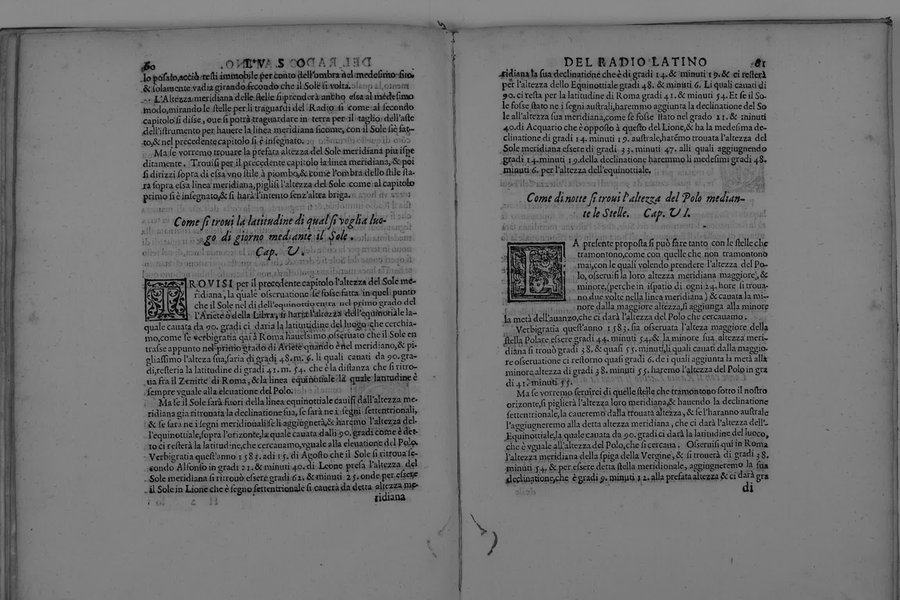 60 L'VSO
lo posato, acciò resti immobile per conto dell'ombra nel medesimo sito,
& solamente vadia girando secondo che il Sole si volta.
L'Altezza meridiana delle stelle si prenderà ancho essa al medesimo
modo, mirando le stelle per li traguardi del Radio si come al secondo
capitolo si disse, oue si potrà traguardare in terra per il taglio dell'aste
dell'istrumento per hauere la linea meridiana sicome, con il Sole s'è fat-
to, & nel precedente capitolo si è insegnato.
Ma se vorremo trouare la prefata altezza del Sole meridiana piu ispe
ditamente. Trouisi per il precedente capitolo la linea meridiana, & poi
si dirizzi sopra di essa vno stile à piombo, & come l'ombra dello stile sta-
rà sopra essa linea meridiana, piglisi l'altezza del Sole come al capitolo
primo si è insegnato, & si harà l'intento senz'altra briga.
Come si troui la latitudine di qual si voglia luo-
go di giorno mediante il Sole.
Cap. V.
TROVISI per il precedente capitolo l'altezza del Sole me-
ridiana, la quale osseruatione se fosse fatta in quel punto
che il Sole nel dì dell'equinottio entra nel primo grado del
l'Ariete ò della Libra, si harìa l'altezza dell'equinottiale la-
quale cauata da 90. gradi ci daria la latitudine del luogo che cerchia-
mo, come se verbigratia qui à Roma hauessimo osseruato che il Sole en
trasse appunto nel primo grado di Ariete quando è nel meridiano, & pi-
gliassimo l'altezza sua, saria di gradi 48. m. 6. li quali cauati da 90. gra-
di, resteria la latitudine di gradi 41. m. 54. che è la distanza che si ritro-
ua fra il Zenitte di Roma, & la linea equinottiale la quale latitudine è
sempre vguale alla eleuatione del Polo.
Ma se il Sole sarà fuori della linea equinottiale cauisi dall'altezza me-
ridiana già ritrouata la declinatione sua, se sarà ne i segni settentrionali,
& se sarà ne i segni meridionali se li aggiugnerà, & haremo l'altezza del-
l'equinottiale, sopra l'orizonte, la quale cauata dalli 90. gradi come è det-
to ci resterà la latitudine, che cercauamo, vguale alla eleuatione del Polo.
Verbigratia quest'anno 1583. adì 15. di Agosto che il Sole si ritroua se-
condo Alfonso in gradi 21. & minuti 40. di Leone presa l'altezza del
Sole meridiana si ritrouò essere gradi 62. & minuti 25. onde per essere
il Sole in Lione che è segno settentrionale si cauerà da detta altezza me-
ridiana
DEL RADIO LATINO 61
ridiana la sua declinatione che è di gradi 14. & minuti 19. & ci resterà
per l'altezza dello Equinottiale gradi 48. & minuti 6. Li quali cauati di
90. ci resta per la latitudine di Roma gradi 41. & minuti 54. Et se il So-
le fosse stato ne i segni australi, haremmo aggiunta la declinatione del So
le all'altezza sua meridiana, come se fosse stato nel grado 21. & minuti
40. di Acquario che è opposto à questo del Lione, & ha la medesima de-
clinatione di gradi 14. minuti 19. australe, haresimo trouata l'altezza del
Sole meridiana essere di gradi 33. minuti 47. alli quali aggiugnendo
gradi 14. minuti 19. della declinatione haremmo li medesimi gradi 48.
minuti 6. per l'altezza dell'equinottiale.
Come di notte si troui l'altezza del Polo median-
te le Stelle. Cap. VI.
LA presente proposta si può fare tanto con le stelle che
tramontono, come con quelle che non tramontono
mai, con le quali volendo prendere l'altezza del Po-
lo, osseruisi la loro altezza meridiana maggiore, &
minore, (perche in ispatio di ogni 24. hore si troua-
no due volte nella linea meridiana) & cauata la mi-
nore dalla maggiore altezza, si aggiunga alla minore
la metà dell'auanzo, che ci darà l'altezza del Polo che cercauamo.
Verbigratia quest'anno 1583. sia osseruata l'alteza maggiore della
stella Polare essere gradi 44. minuti 54. & la minore sua altezza meri-
diana si trouò gradi 38. & minuti 55. minuti, li quali cauati dalla maggio-
re osseruatione ci restono quasi gradi 6. de i quali aggiunta la metà alla
minore altezza, di gradi 38. minuti 55. haremo l'altezza del Polo in gra
di 41. minuti 55.
Ma se vorremo seruirci di quelle stelle che tramontono sotto il nostro
orizonte, si piglierà l'altezza loro meridiana, & hauendo la declinatione
settentrionale, la caueremo dalla trouata altezza, & se l'haranno australe
l'aggiugneremo alla detta altezza meridiana, che ci darà l'altezza dell'-
Equinottiale, la quale cauata da 90. gradi ci darà la latitudine del luoco,
che è vguale all'altezza del Polo, che si cercana. Osseruisi qui in Roma
l'altezza meridiana della spiga della Vergine, & si trouerà di gradi 38.
minuti 54. & per essere detta stella meridionale, aggiugneremo la sua
declinatione, che è gradi 9. minuti 12. alla prefata altezza & ci darà gra
di